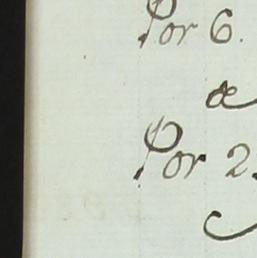 Por 6.
æ
Por 2.